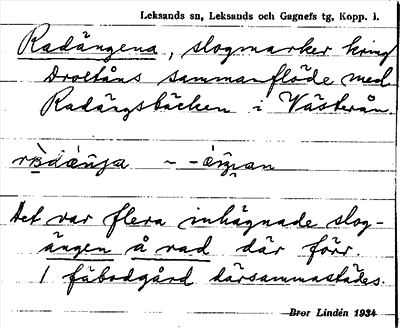 Leksands sn, Leksands och Gagnefs tg, Kopp. l.
Radängena, slogmarker kring
Droetåns sammanflöde med
Radängsbäcken i Västerån
Det var flera inhägnade slog-
ängen å rad där förr
1 fäbodgård därsammastädes.
Bror Lindén 1934